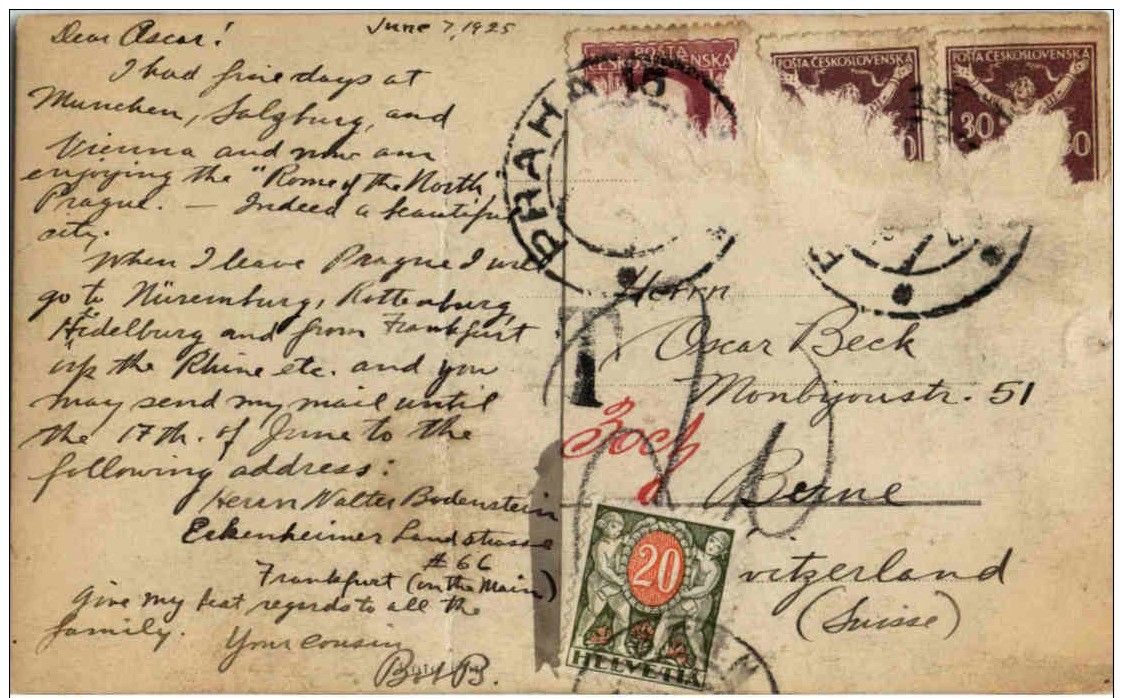 June 7, 1925
Dear Oscar!
I had fine days at
Munchen, Salzburg, and
Vienna and now am
enjoying the "Rome of the North,
Prague. — Indeed a beautiful
city.
When I leave Prague I will
go to Nüremburg, Rottenburg,
Hidelburg and from Frankfurt
up the Rhine etc. and you
may send my mail until
the 17th. of June to the
following address:
Herrn Walter Bodenstein
Eckenheimer Landstrasse
#66
Frankfurt (on the Main)
Give my best regards to all the
family.
Your cousin
B.
POSTA
ČESKOSLOVENSKÁ
POŠTA ČESKOSLOVENSKÁ
POŠTA ČESKOSLOVENSKÁ
30
PRAHA
15
T
Herrn
Oscar Beck
Monbijoustr. 51
Berne
witzerland
(Suisse)
20
HELVETIA